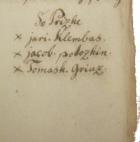 Do Prizke
× jari. Klembas.
× jacob. potozkin.
× Tomask. Griuz